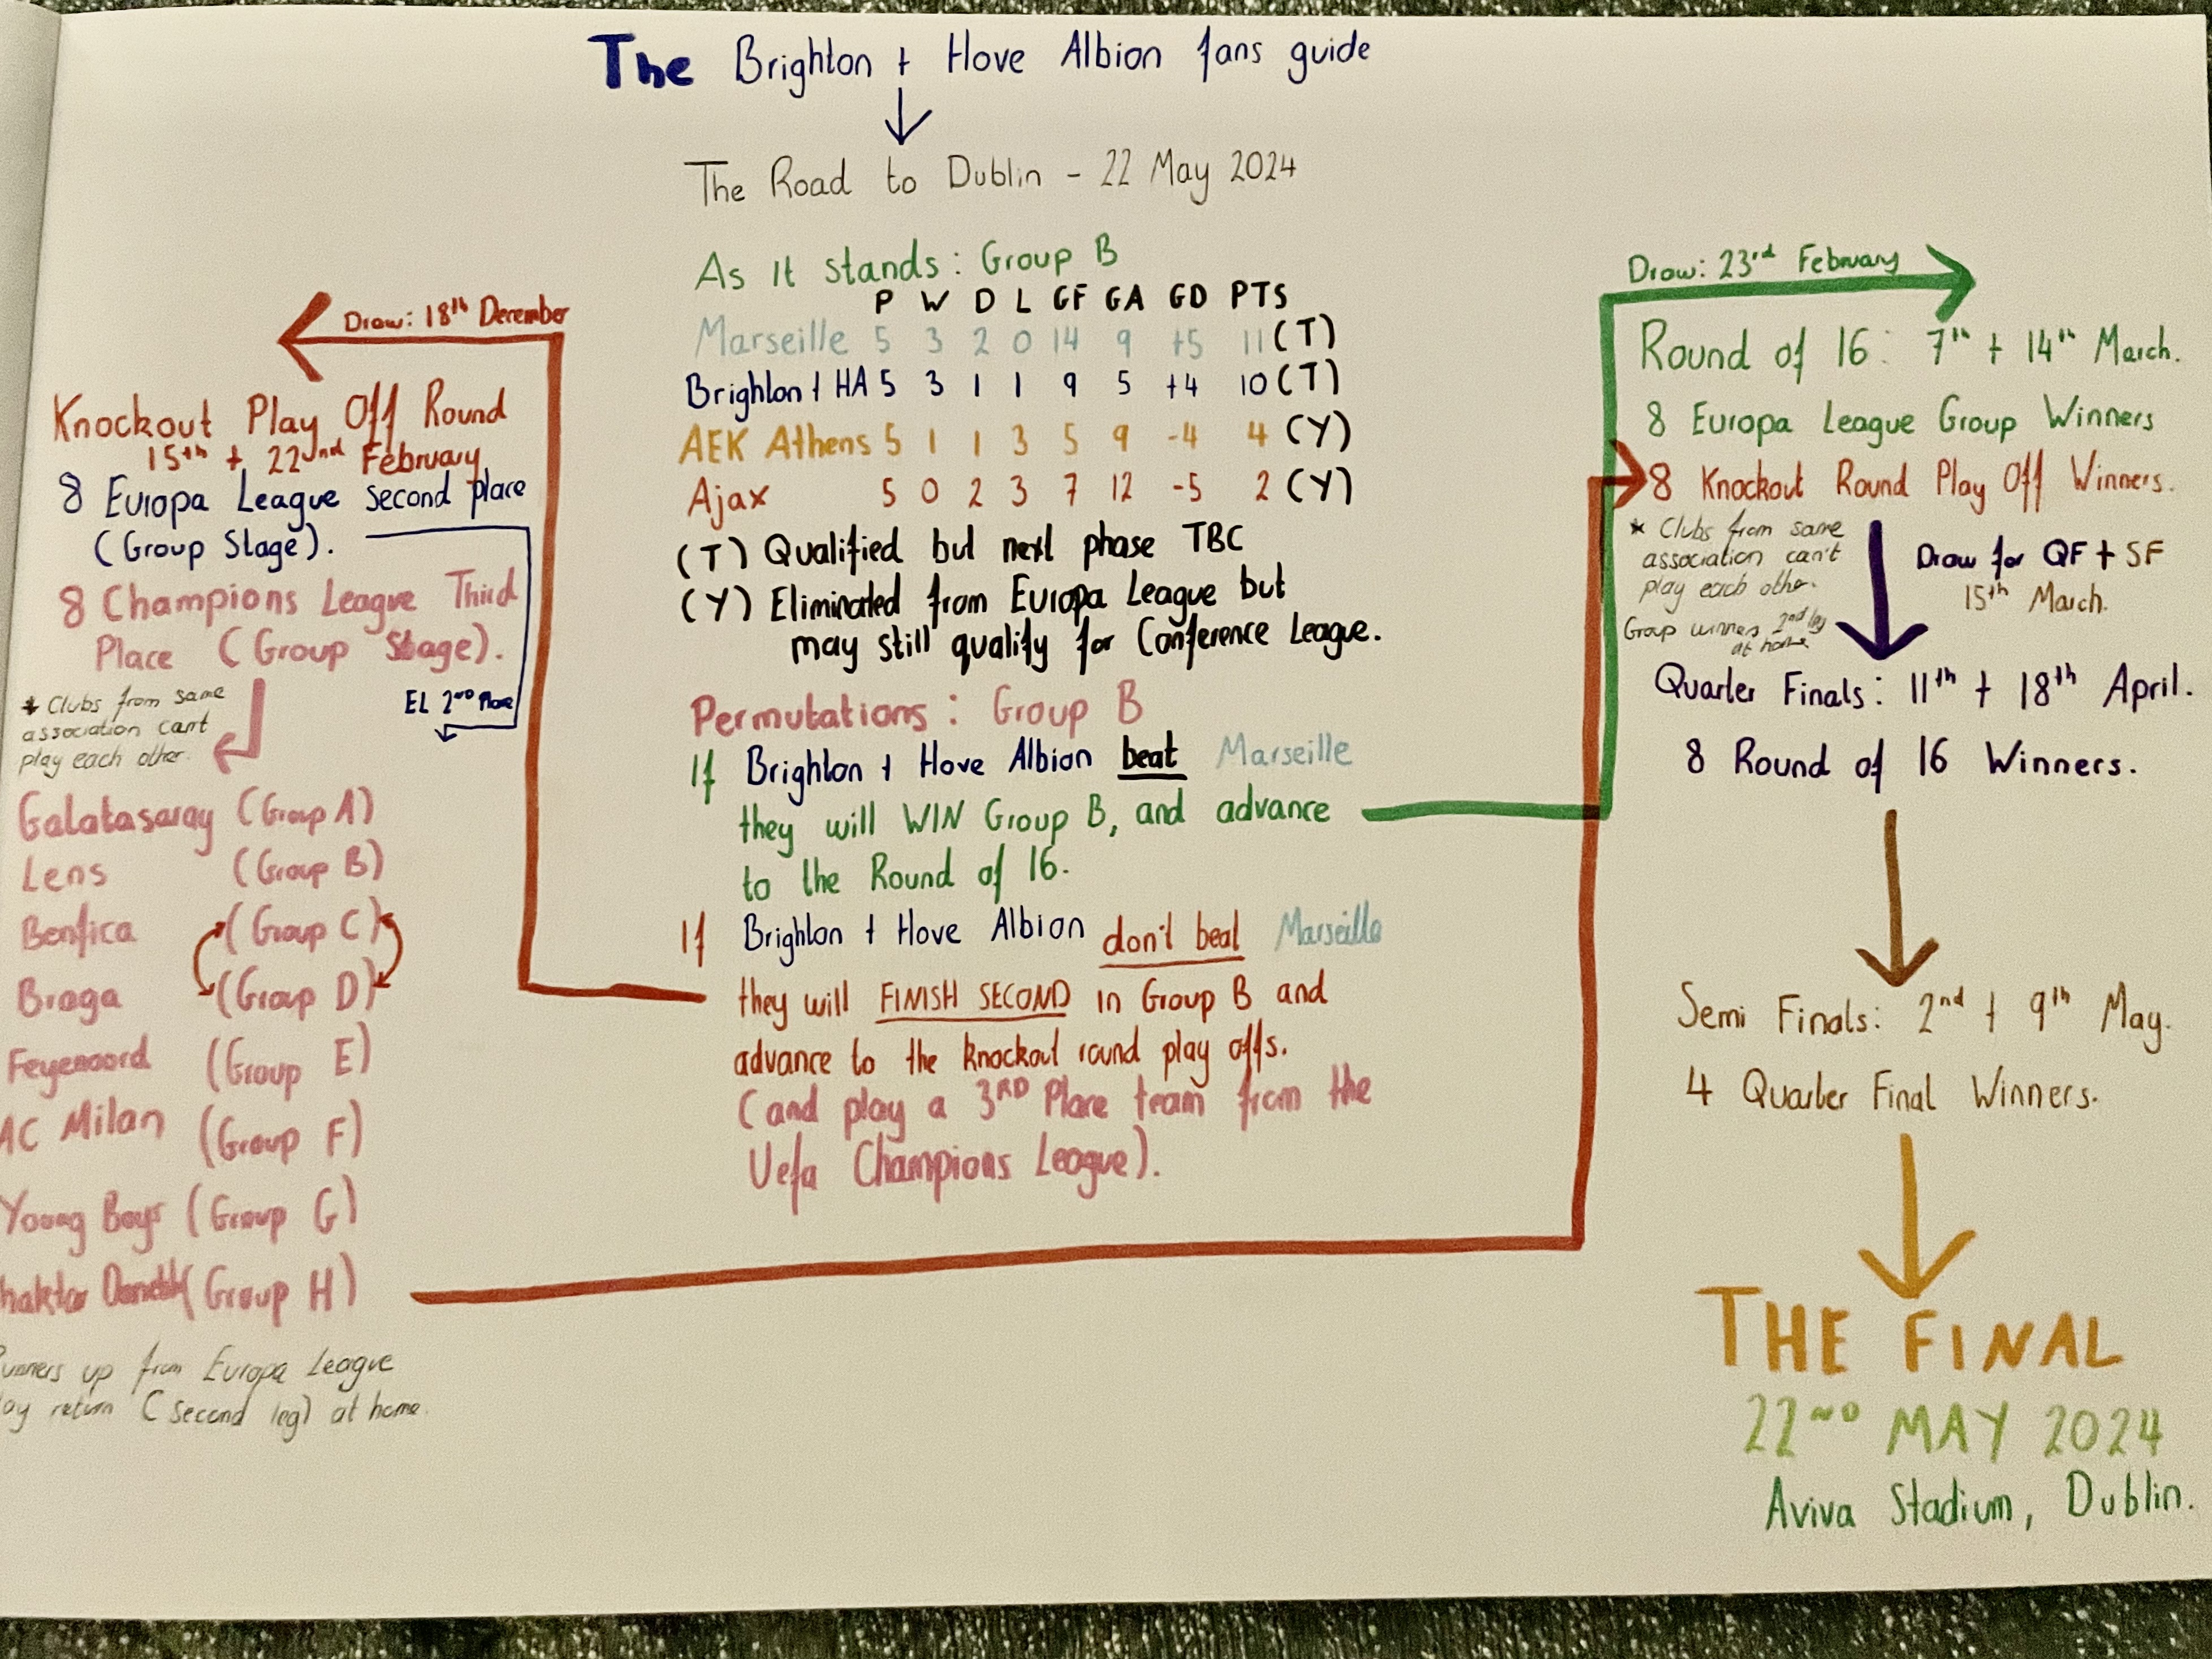 The Brighton + Hove Albion fans guide
The Road to Dublin - 22 May 2024
As it stands: Group B
P W D L GF GA GD PTS
Marseille 5 3 2 0 14 9 +5 11 (T)
Brighton + HA 5 3 1 1 9 5 +4 10 (T)
AEK Athens 5 1 1 3 5 9 -4 4 (Y)
Ajax 5 0 2 3 7 12 -5 2 (Y)
(T) Qualified but next phase TBC
(Y) Eliminated from Europa League but
may still qualify for Conference League.
Permutations: Group B
If Brighton + Hove Albion beat Marseille
they will WIN Group B, and advance
to the Round of 16.
If Brighton + Hove Albion don't beat Marseille
they will FINISH SECOND in Group B and
advance to the knockout round play offs.
(and play a 3RD Place team from the
Uefa Champions League).
Draw: 18th December
Knockout Play Off Round
15th + 22nd February
8 Europa League second place
(Group Stage).
8 Champions League Third
Place (Group Stage).
* Clubs from same
association can't
play each other.
EL 2ND Place
Galatasaray (Group A)
Lens (Group B)
Benfica (Group C)
Braga (Group D)
Feyenoord (Group E)
AC Milan (Group F)
Young Boys (Group G)
haktar Donetsk (Group H)
unners up from Europa League
lay return (second leg) at home.
Draw: 23rd February
Round of 16: 7th + 14th March.
8 Europa League Group Winners
8 Knockout Round Play Off Winners.
* Clubs from same
association can't
play each other.
Group winners 2nd leg
at home
Draw for QF + SF
15th March.
Quarter Finals: 11th + 18th April.
8 Round of 16 Winners.
Semi Finals: 2nd + 9th May.
4 Quarter Final Winners.
THE FINAL
22ND MAY 2024
Aviva Stadium, Dublin.